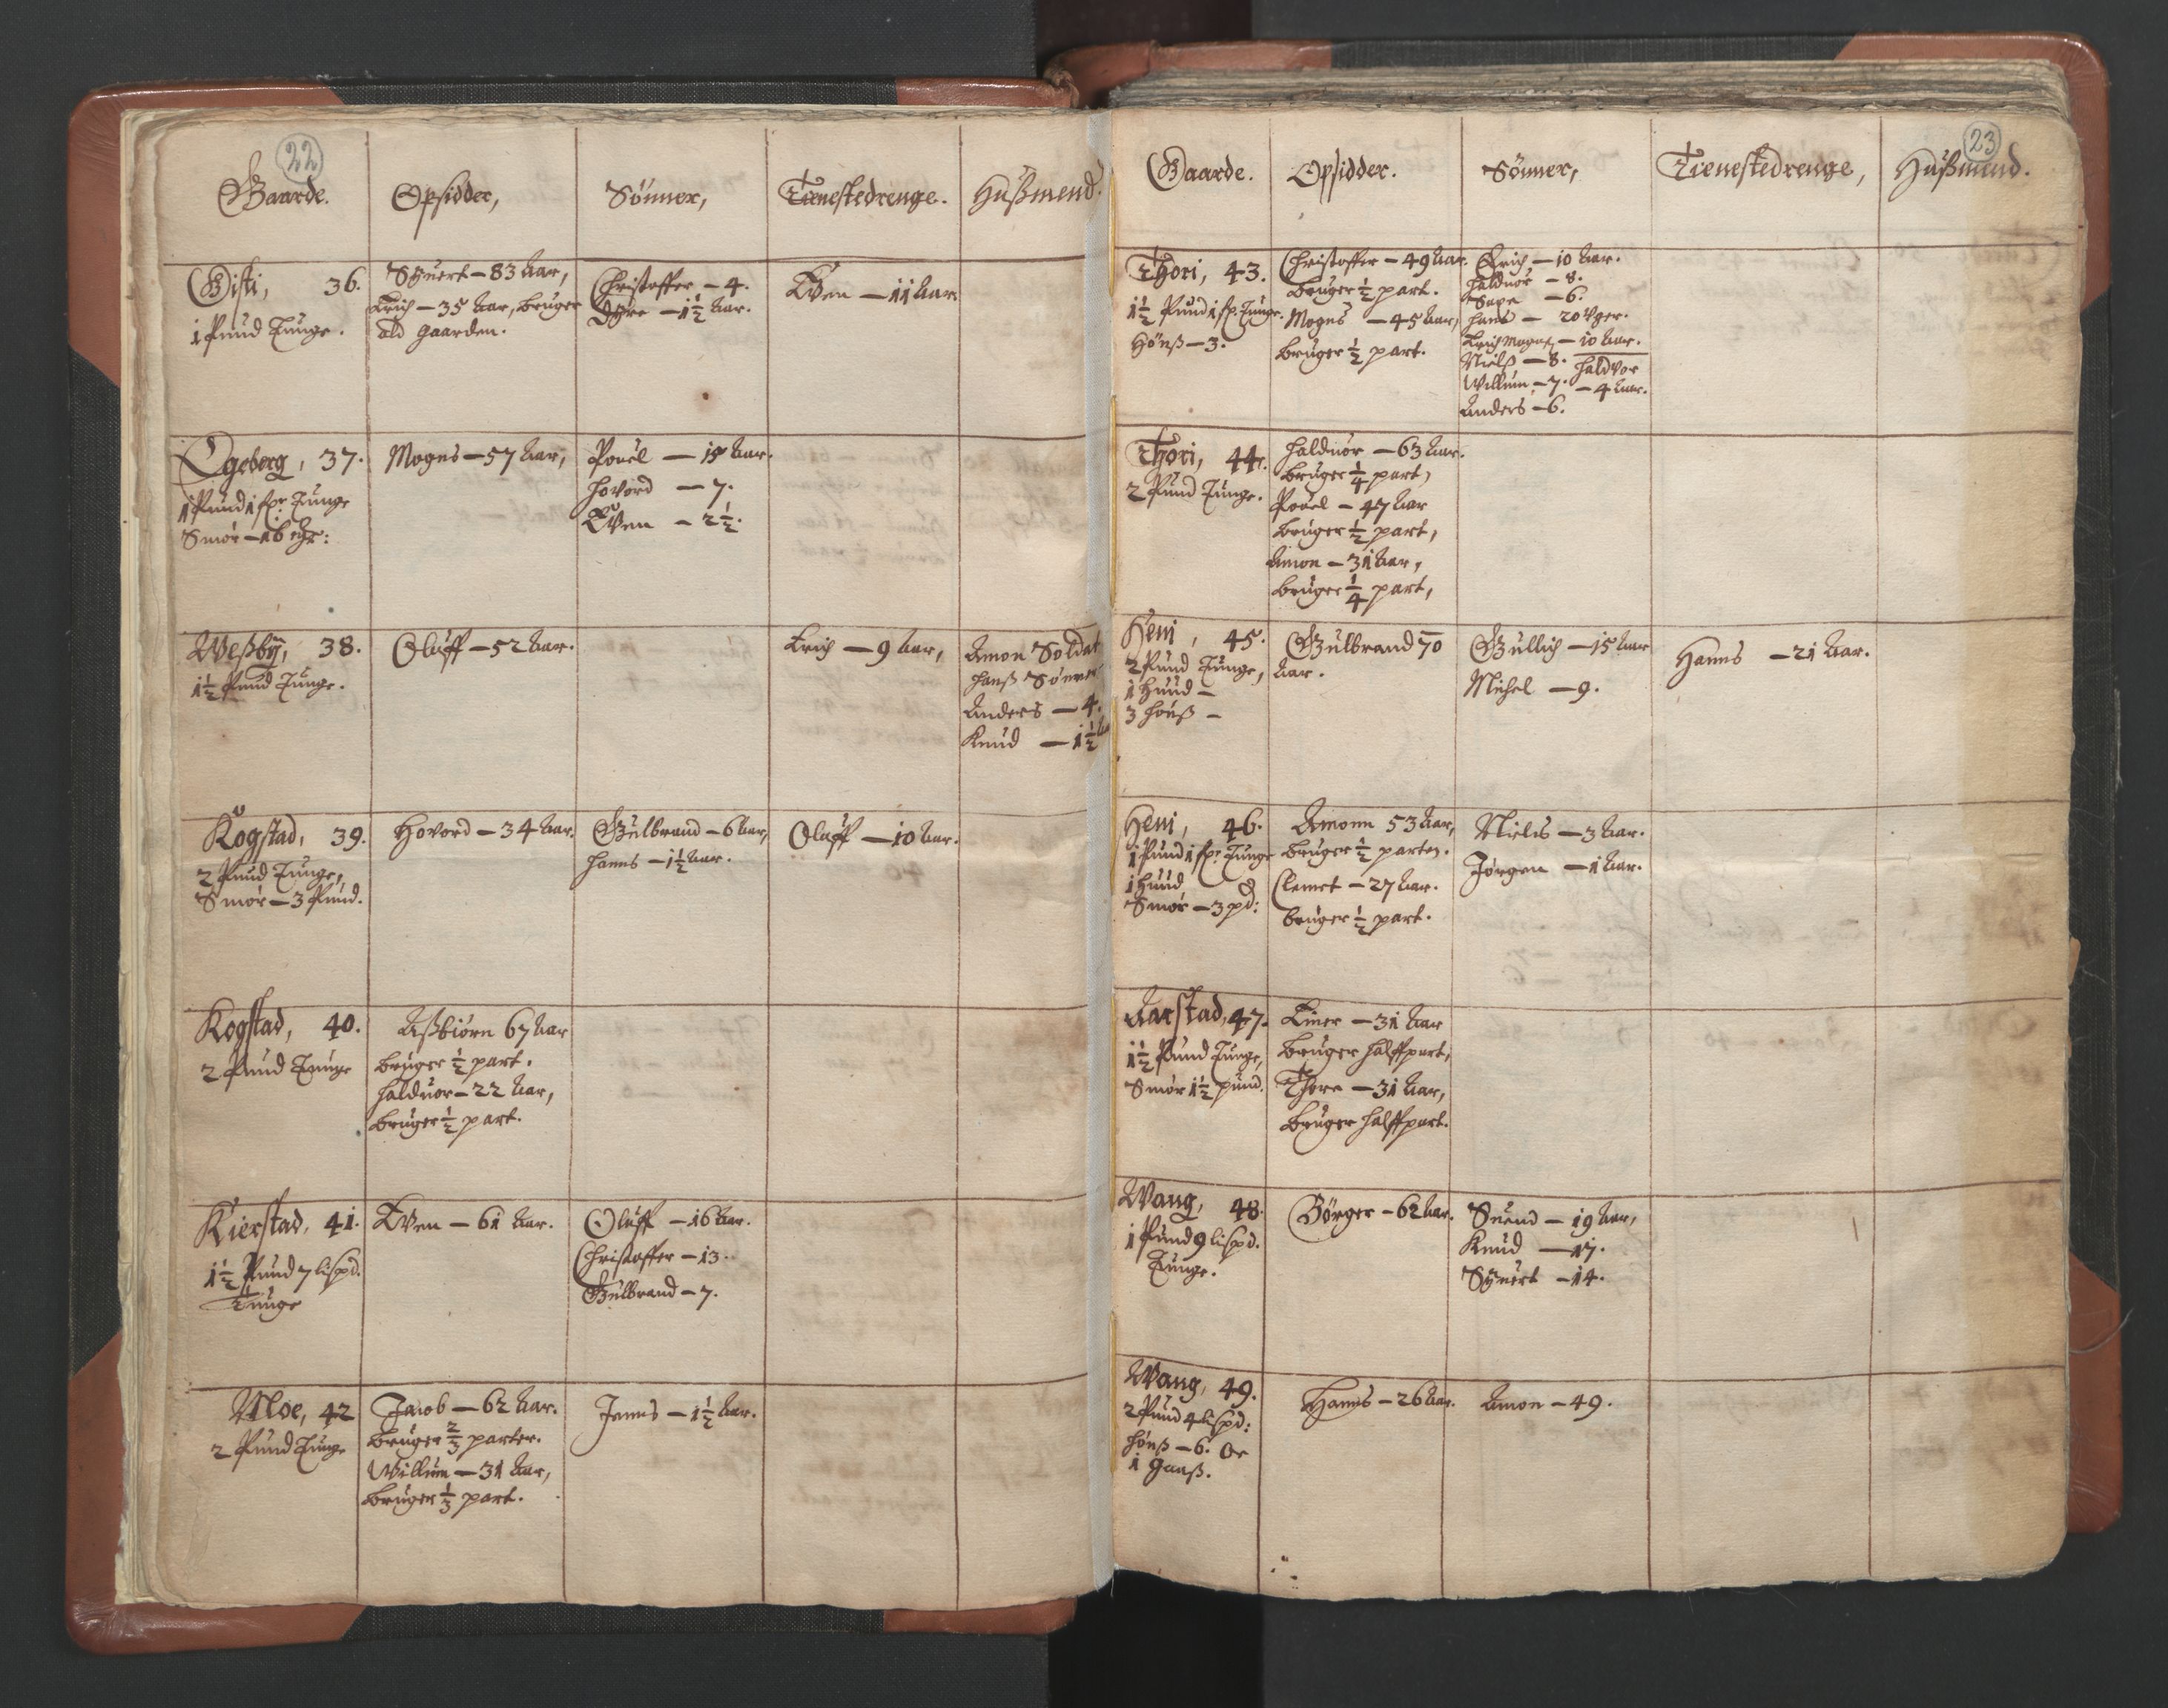 22
Gaarde.
Opsidder,
Sönner,
Tienestedrenge.
Hußmend.
Gisti, 36.
1 Pund Tunge.
Syuert – 83 Aar,
Erich – 35 Aar, bruger
ald gaarden.
Christoffer – 4.
Dyre – 1½ Aar.
Even – 11 Aar.
Egeberg, 37.
1 Pund 1 sp: Tunge
Smör – 16
Mogns – 57 Aar,
Pouel – 15 Aar.
Hovord – 7.
Even – 2½.
Weßby, 38.
1½ Pund Tunge.
Oluff – 52 Aar.
Erich – 9 Aar,
Amon Soldat
hanß Sönner
Anders – 4.
Knud – 1½
Kogstad, 39.
2 Pund Tunge,
Smör – 3 Pund.
Hovord – 34 Aar.
Gulbrand – 6 Aar,
Hanns – 1½ Aar.
Oluff – 10 Aar.
Kogstad, 40.
2 Pund Tunge
Aßbiörn 67 Aar
bruger ½ part.
Halduor – 22 Aar,
bruger ½ part.
Kierstad, 41.
1½ Pund 7 lispd.
Tunge
Even – 61 Aar.
Oluff – 16 Aar.
Christoffer – 13.
Gulbrand – 7.
Moe, 42
2 Pund Tunge
Jacob – 62 Aar.
bruger ⅔ parter.
Willum – 31 Aar,
bruger ⅓ part.
Jenns – 1½ Aar.
23
Gaarde.
Opsidder.
Sönner,
Tienestedrenge,
Hußmend.
Thori, 43.
1½ Pund 1 sp. Tunge.
Hönß – 3.
Christoffer – 49 Aar.
bruger ½ part.
Mogns – 45 Aar,
bruger ½ part.
Erich – 10 Aar.
Halduor – 8.
– 6.
Hans – 20 Uger.
Erich Mogns – 10 Aar.
Nielß – 8.
Haldvor
Willum – 7. – 4 Aar.
Anders – 6.
Thori, 44.
2 Pund Tunge.
Halduor – 63 Aar.
bruger ¼ part,
Pouel – 47 Aar
bruger ½ part,
Amon – 31 Aar,
bruger ¼ part,
Heni, 45.
2 Pund Tunge,
1 Huud –
3 Hönß –
Gulbrand – 70
Aar.
Gullich – 15 Aar
Michel – 9.
Hanns – 21 Aar.
Heni, 46.
1 Pund 1 sp: Tunge
1 Huud &
Smör – 3 pd:
Amonn 53 Aar,
bruger ½ parten.
Clemet – 27 Aar.
bruger ½ part.
Niels – 3 Aar.
Jörgen – 1 Aar.
Aarstad, 47.
1½ Pund Tunge,
Smör 1½ pund.
Einer – 31 Aar
bruger halffpart,
Thore – 31 Aar,
bruger halffpart.
Wang, 48.
1 Pund 9 lispd.
Tunge.
Börger – 62 Aar.
Suend – 19 Aar,
Knud – 17.
Syuert – 14.
Wang, 49.
2 Pund 4 lispd:
Hönß – 6. Oc
1 Gaaß.
Hanns – 26 Aar.
Amon – 49.